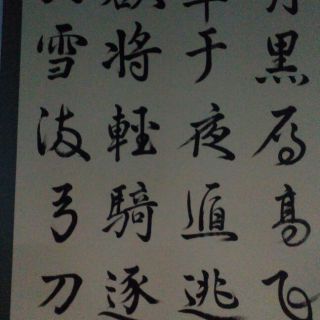 月黑雁高飞
單于夜遁逃
欲將輕騎逐
大雪满弓刀